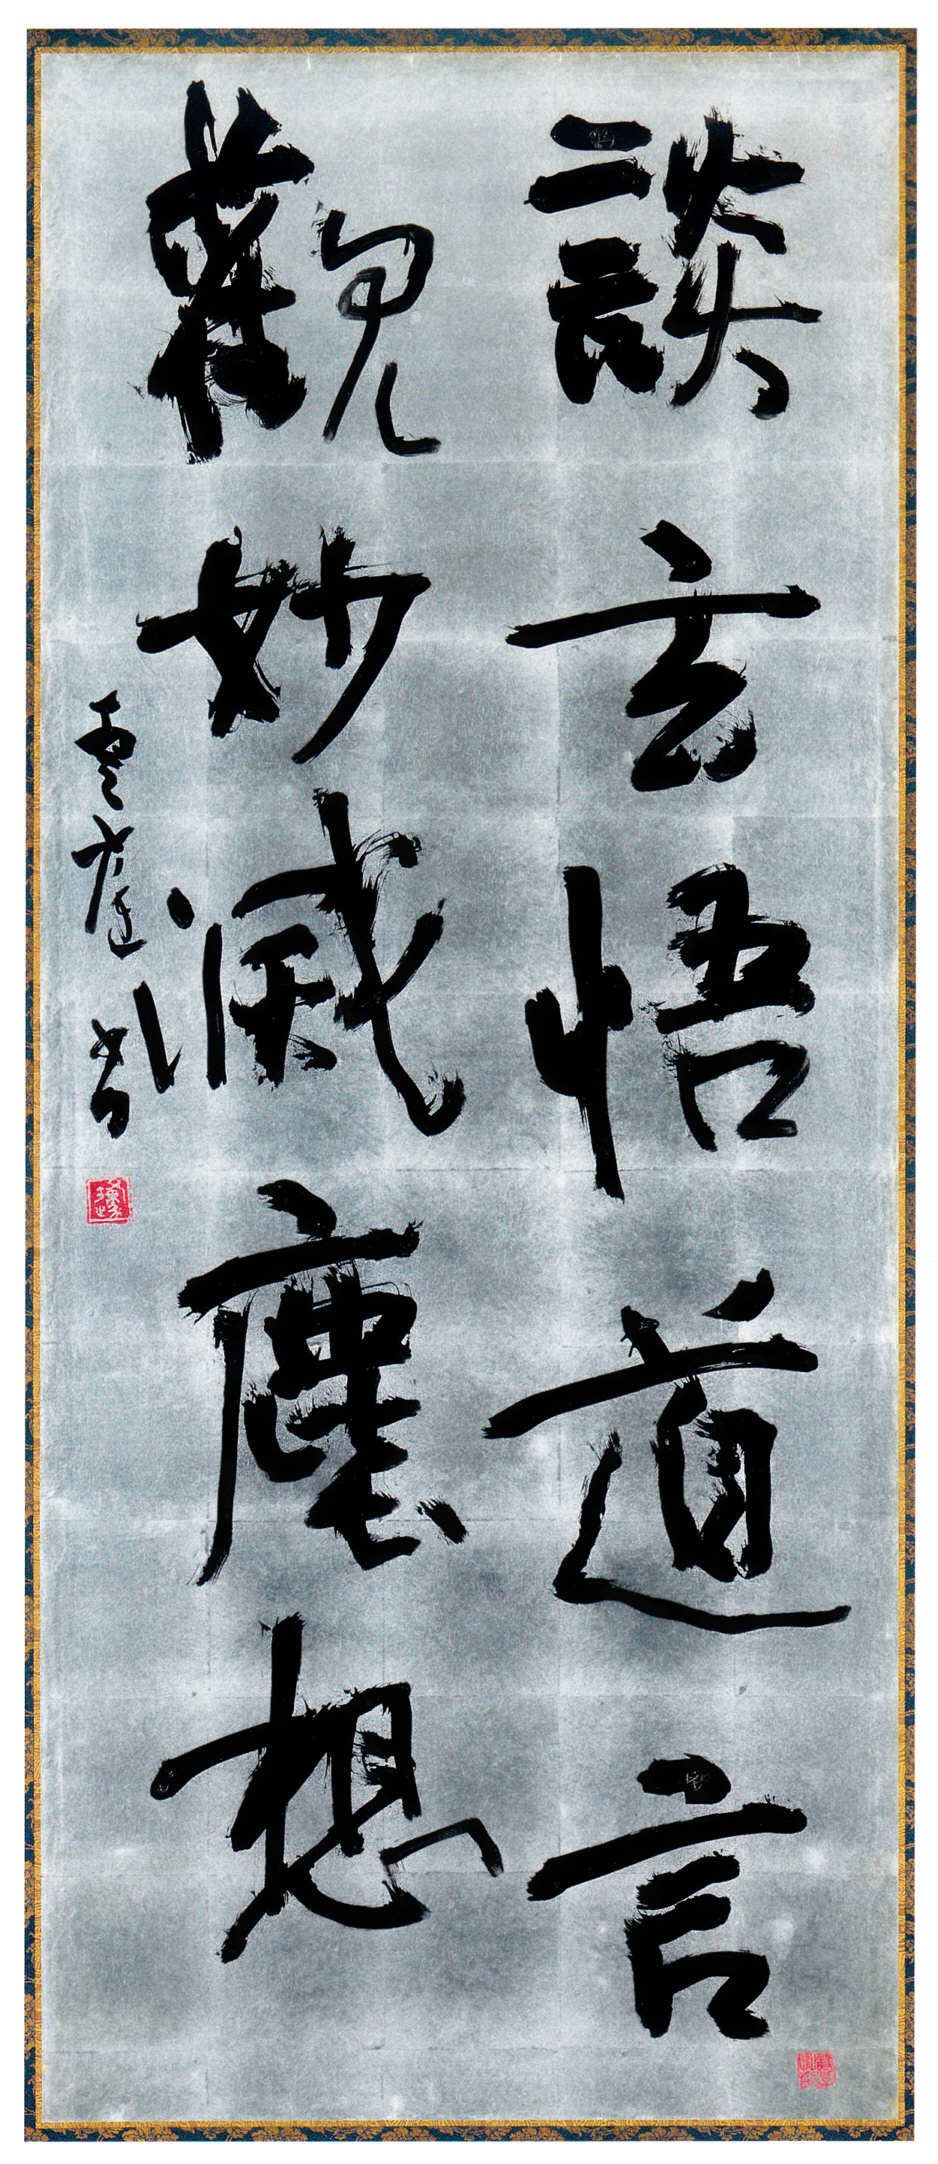 談玄悟道言
觀妙滅塵想
雲庭書